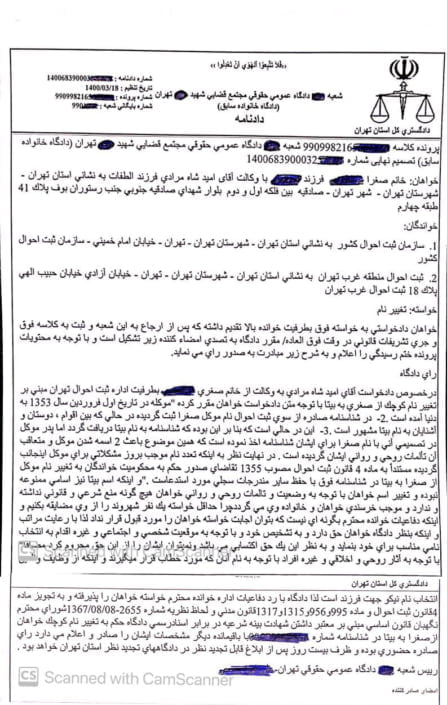 «فَلا تَتَّبِعُوا الْهَوى أَنْ تَعْدِلُوا»
شماره دادنامه : 14006839000
تاریخ تنظیم : 1400/03/18
شماره پرونده : 9909982
شماره بایگانی شعبه : 990
شعبه دادگاه عمومی حقوقی مجتمع قضایی شهید تهران
(دادگاه خانواده سابق)
دادنامه
دادگستری کل استان تهران
پرونده کلاسه 99099821 شعبه دادگاه عمومی حقوقی مجتمع قضایی شهید تهران (دادگاه خانواده
سابق) تصمیم نهایی شماره 140068390003
خواهان: خانم صغرا فرزند با وکالت آقای امید شاه مرادی فرزند الطفات به نشانی استان تهران -
شهرستان تهران - شهر تهران - صادقیه بین فلکه اول و دوم بلوار شهدای صادقیه جنوبی جنب رستوران بوف پلاک 41
طبقه چهارم
خواندگان:
1. سازمان ثبت احوال کشور به نشانی استان تهران - شهرستان تهران - تهران - خیابان امام خمینی - سازمان ثبت احوال
کشور
2. ثبت احوال منطقه غرب تهران به نشانی استان تهران - شهرستان تهران - تهران - خیابان آزادی خیابان حبیب الهی
پلاک 18 ثبت احوال غرب تهران
خواسته: تغییر نام
خواهان دادخواستی به خواسته فوق بطرفیت خوانده بالا تقدیم داشته که پس از ارجاع به این شعبه و ثبت به کلاسه فوق
و جری تشریفات قانونی در وقت فوق العاده/ مقرر دادگاه به تصدی امضاء کننده زیر تشکیل است و با توجه به محتویات
پرونده ختم رسیدگی را اعلام و به شرح زیر مبادرت به صدور رای می نماید.
رای دادگاه
درخصوص دادخواست آقای امید شاه مرادی به وکالت از خانم صغری بطرفیت اداره ثبت احوال تهران مبنی بر
تغییر نام کوچک از صغری به بیتا با توجه متن دادخواست خواهان مقرر کرده "موکله در تاریخ اول فروردین سال 1353 به
دنیا آمده است .2- در شناسنامه صادره از سوی ثبت احوال نام موکل صغرا ثبت گردیده در حالی که بین اقوام ، دوستان و
آشنایان به نام بیتا مشهور است .3- این در حالی است که بنا بر این بوده که شناسنامه به نام بیتا دریافت گردد اما پدر موکل
در تصمیمی آنی با نام صغرا برای ایشان شناسنامه اخذ نموده است که همین موضوع باعث 2 اسمه شدن موکل و متعاقب
آن تألمات روحی و روانی ایشان گردیده است . در نهایت نظر به اینکه تعدد نام موجب بروز مشکلاتی برای موکل اینجانب
گردیده مستنداً به ماده 4 قانون ثبت احوال مصوب 1355 تقاضای صدور حکم به محکومیت خواندگان به تغییر نام موکل
از صغرا به بیتا در شناسنامه فوق با حفظ سایر مندرجات سجلی مورد استدعاست ."و اینکه اسم بیتا نیز اسامی ممنوعه
نبوده و تغییر اسم خواهان با توجه به وضعیت و تالمات روحی و روانی خواهان هیچ گونه منع شرعی و قانونی نداشته
و ندارد و موجب خرسندی خواهان و خانواده وی می گردد چرا حداقل خواسته یک نفر شهروند را از وی مضایقه بکنیم و
اینکه دفاعیات خوانده محترم بگونه ای نیست که بتوان اجابت خواسته خواهان را مورد قبول قرار نداد لذا با رعایت مراتب
و اینکه بنظر دادگاه خواهان حق دارد و به تشخیص خود و با توجه به موقعیت شخصی و اجتماعی و غیره اقدام به انتخاب
نامی مناسب برای خود بنماید و به نظر این یک حق اکتسابی می باشد ونمیتوان ایشان را از این حق محروم کرد
با توجه به آثار روحی و اخلاقی و غیره افراد با توجه به نام آنان که مورد خطاب قرار میگیرند و اینکه از وظایف
CS Scanned with CamScanner
دادگستری کل استان تهران
انتخاب نام نیکو جهت فرزند است لذا دادگاه با رد دفاعیات اداره خوانده محترم خواسته خواهان را پذیرفته و به تجویز ماده
4قانون ثبت احوال و ماده 995و956و1315و1317قانون مدنی و لحاظ نظریه شماره 2655-1367/08/08شورای محترم
نگهبان قانون اساسی مبنی بر معتبر داشتن شهادت بینه شرعیه در برابر اسنادرسمی دادگاه حکم به تغییر نام کوچک خواهان
از صغرا به بیتا در شناسنامه شماره باقیمانده دیگر مشخصات ایشان را صادر و اعلام می دارد رای
صادره حضوری بوده و ظرف بیست روز پس از ابلاغ قابل تجدید نظر در دادگاههای تجدید نظر استان تهران خواهد بود .
رییس شعبه دادگاه عمومی حقوقی تهران-
CS Scanned with CamScanner
امضای صادر کننده